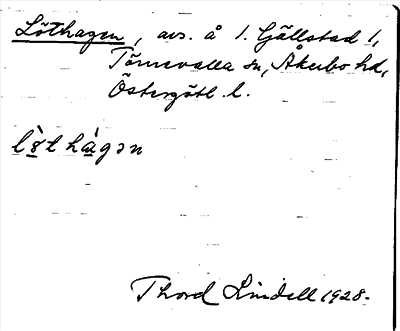 Löthagen, avs. å 1. Gällstad 1,
Törnevalla sn, Åkerbo hd,
Östergötl. l.
lö̀t hàgən
Thord Lindell 1928.